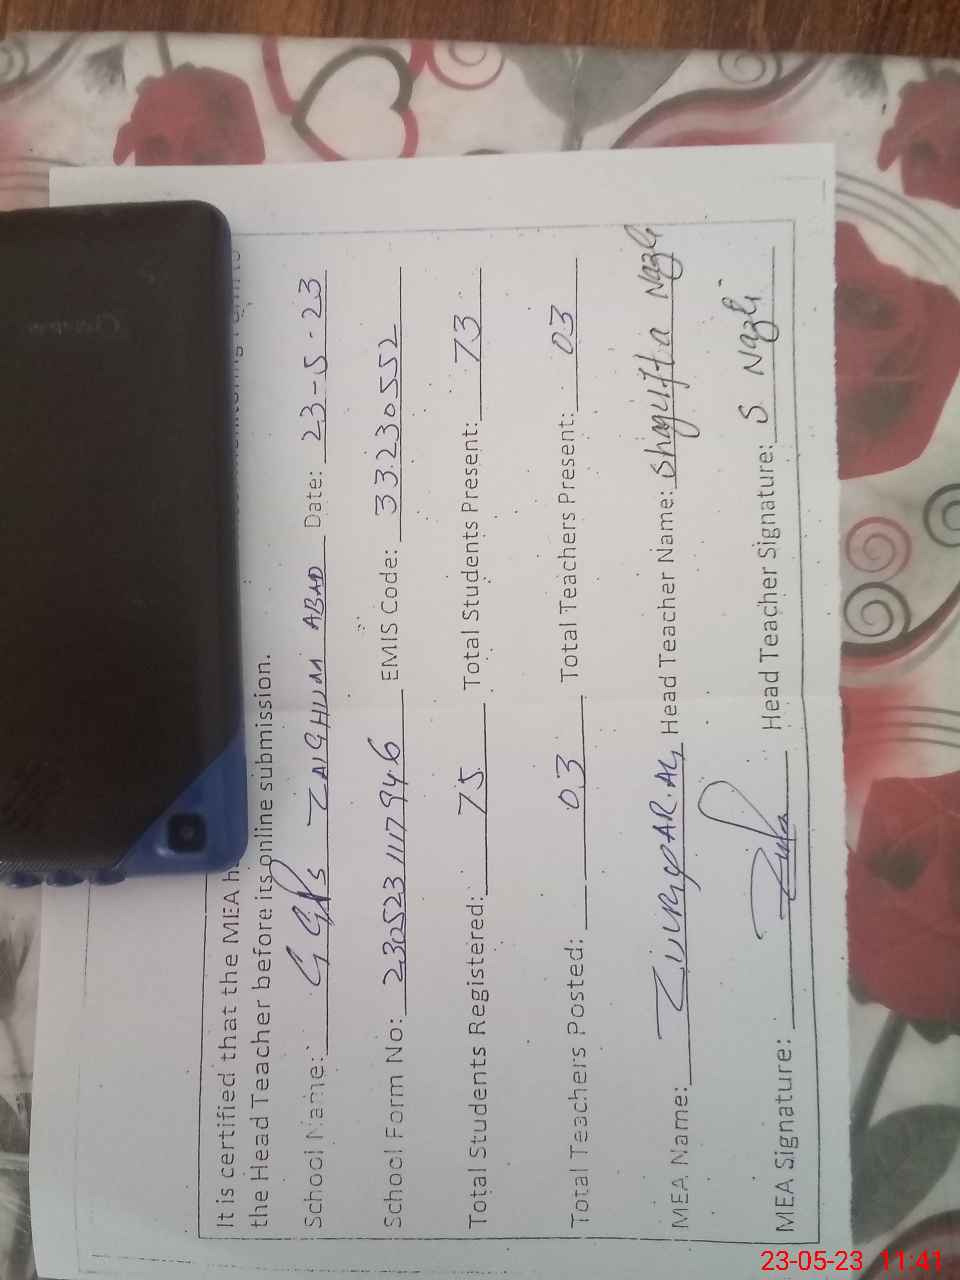 It is certified that the MEA h
the Head Teacher before its online submission.
School Name: GGPS ZAIGHUM ABAD Date: 23-5-23
School Form No: 2305231117946 EMIS Code: 33230552
Total Students Registered: 75 Total Students Present: 73
Total Teachers Posted: 03 Total Teachers Present: 03
MEA Name: ZULRIQAR ALI Head Teacher Name: Shagufta Nazli
MEA Signature: Head Teacher Signature: S Nazli
23-05-23 11:41